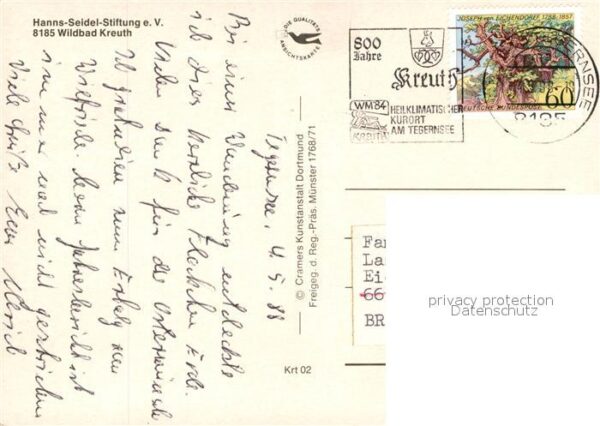 Hanns-Seidel-Stiftung e. V.
8185 Wildbad Kreuth
DIE QUALITÄTS
ANSICHTSKARTE
800
Jahre
Kreuth
WM'84
KREUTH
HEILKLIMATISCHER
KURORT
AM TEGERNSEE
JOSEPH von EICHENDORFF 1788-1857
DEUTSCHE BUNDESPOST
60
TEGERNSEE
8185
Tegernsee, 4.5.88
Bei einer Wanderung entdeckte
ich dies herrliche Fleckchen Erde.
Vielen Dank für die Ostermünze
Ich gratuliere zum Erfolg von
Wilfriede. Mein Jahresbericht ist
immer noch nicht geschrieben
Viele Grüße Euer Ulrich
© Cramers Kunstanstalt Dortmund
Freigeg. d. Reg.-Präs. Münster 1768/71
Krt 02
Fa
La
Ei
66
BR
privacy protection
Datenschutz